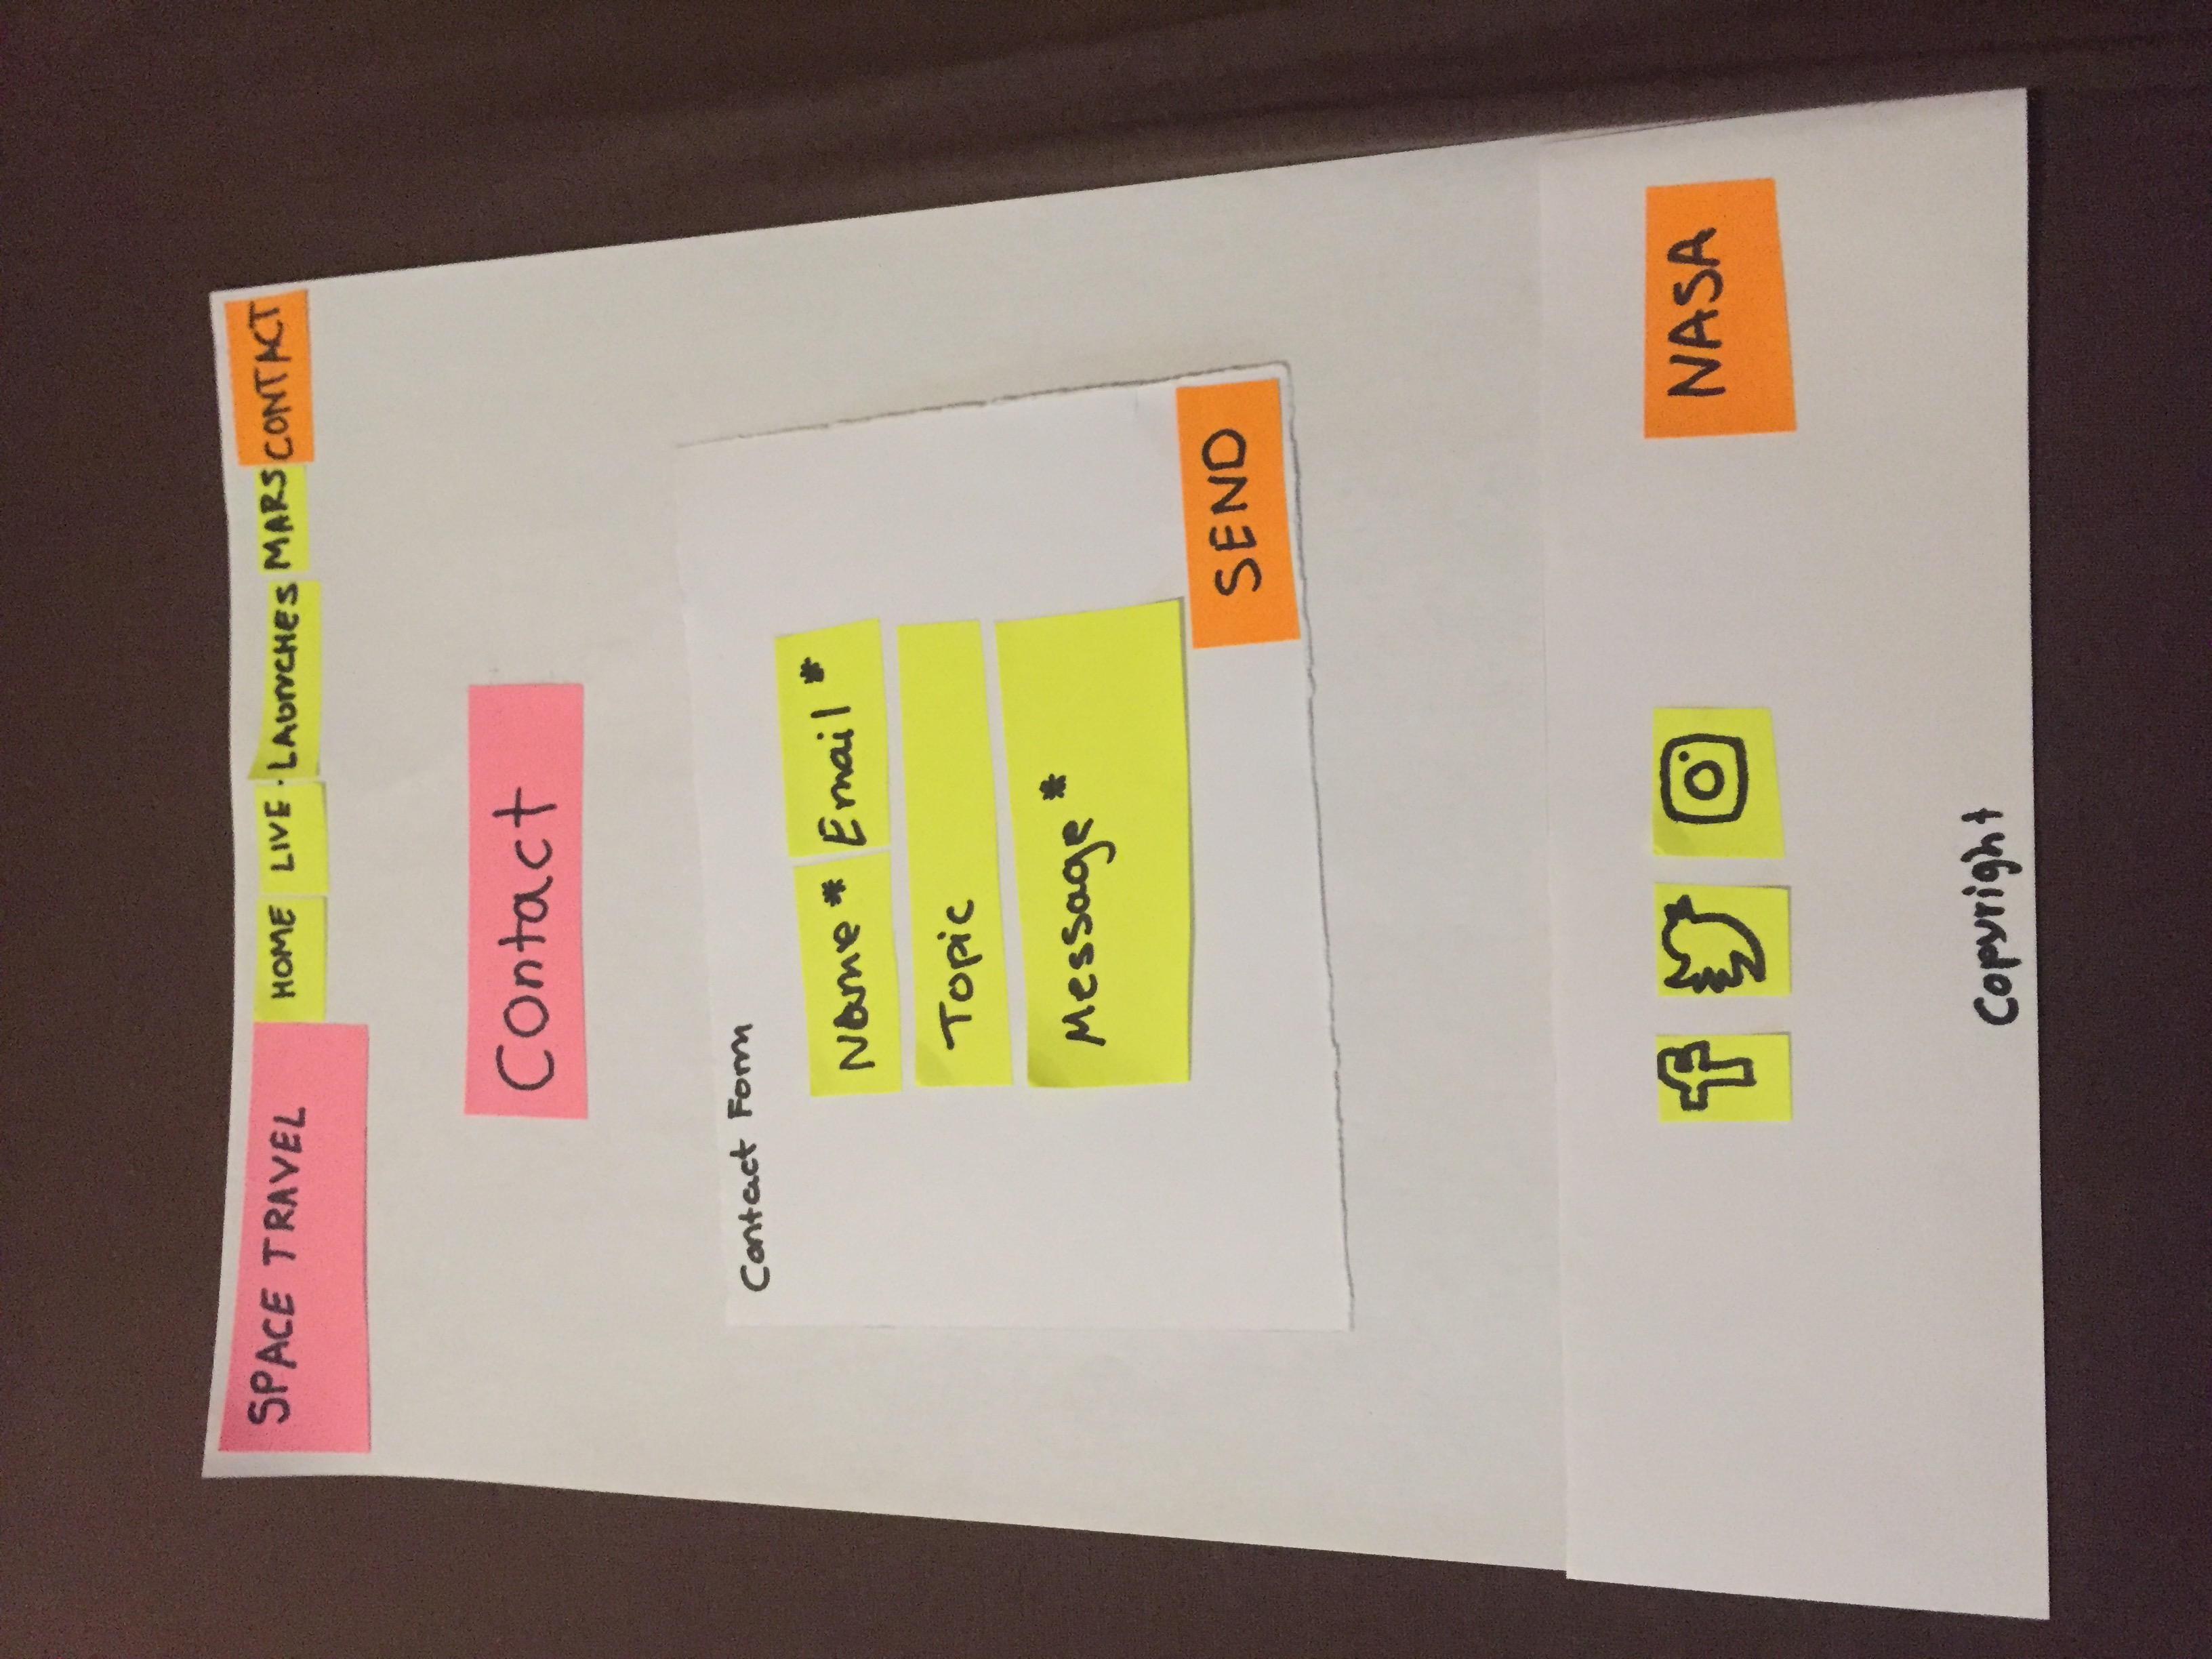 SPACE TRAVEL HOME LIVE LAUNCHES MARS CONTACT
Contact
Contact Form
Name* Email*
Topic
Message*
SEND
NASA
Copyright